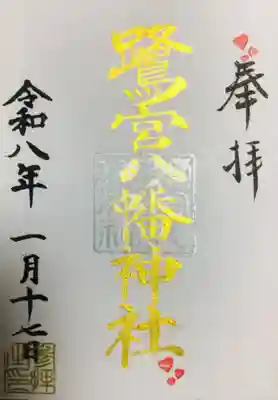 奉拝
鷺宮八幡神社
令和八年 一月十七日